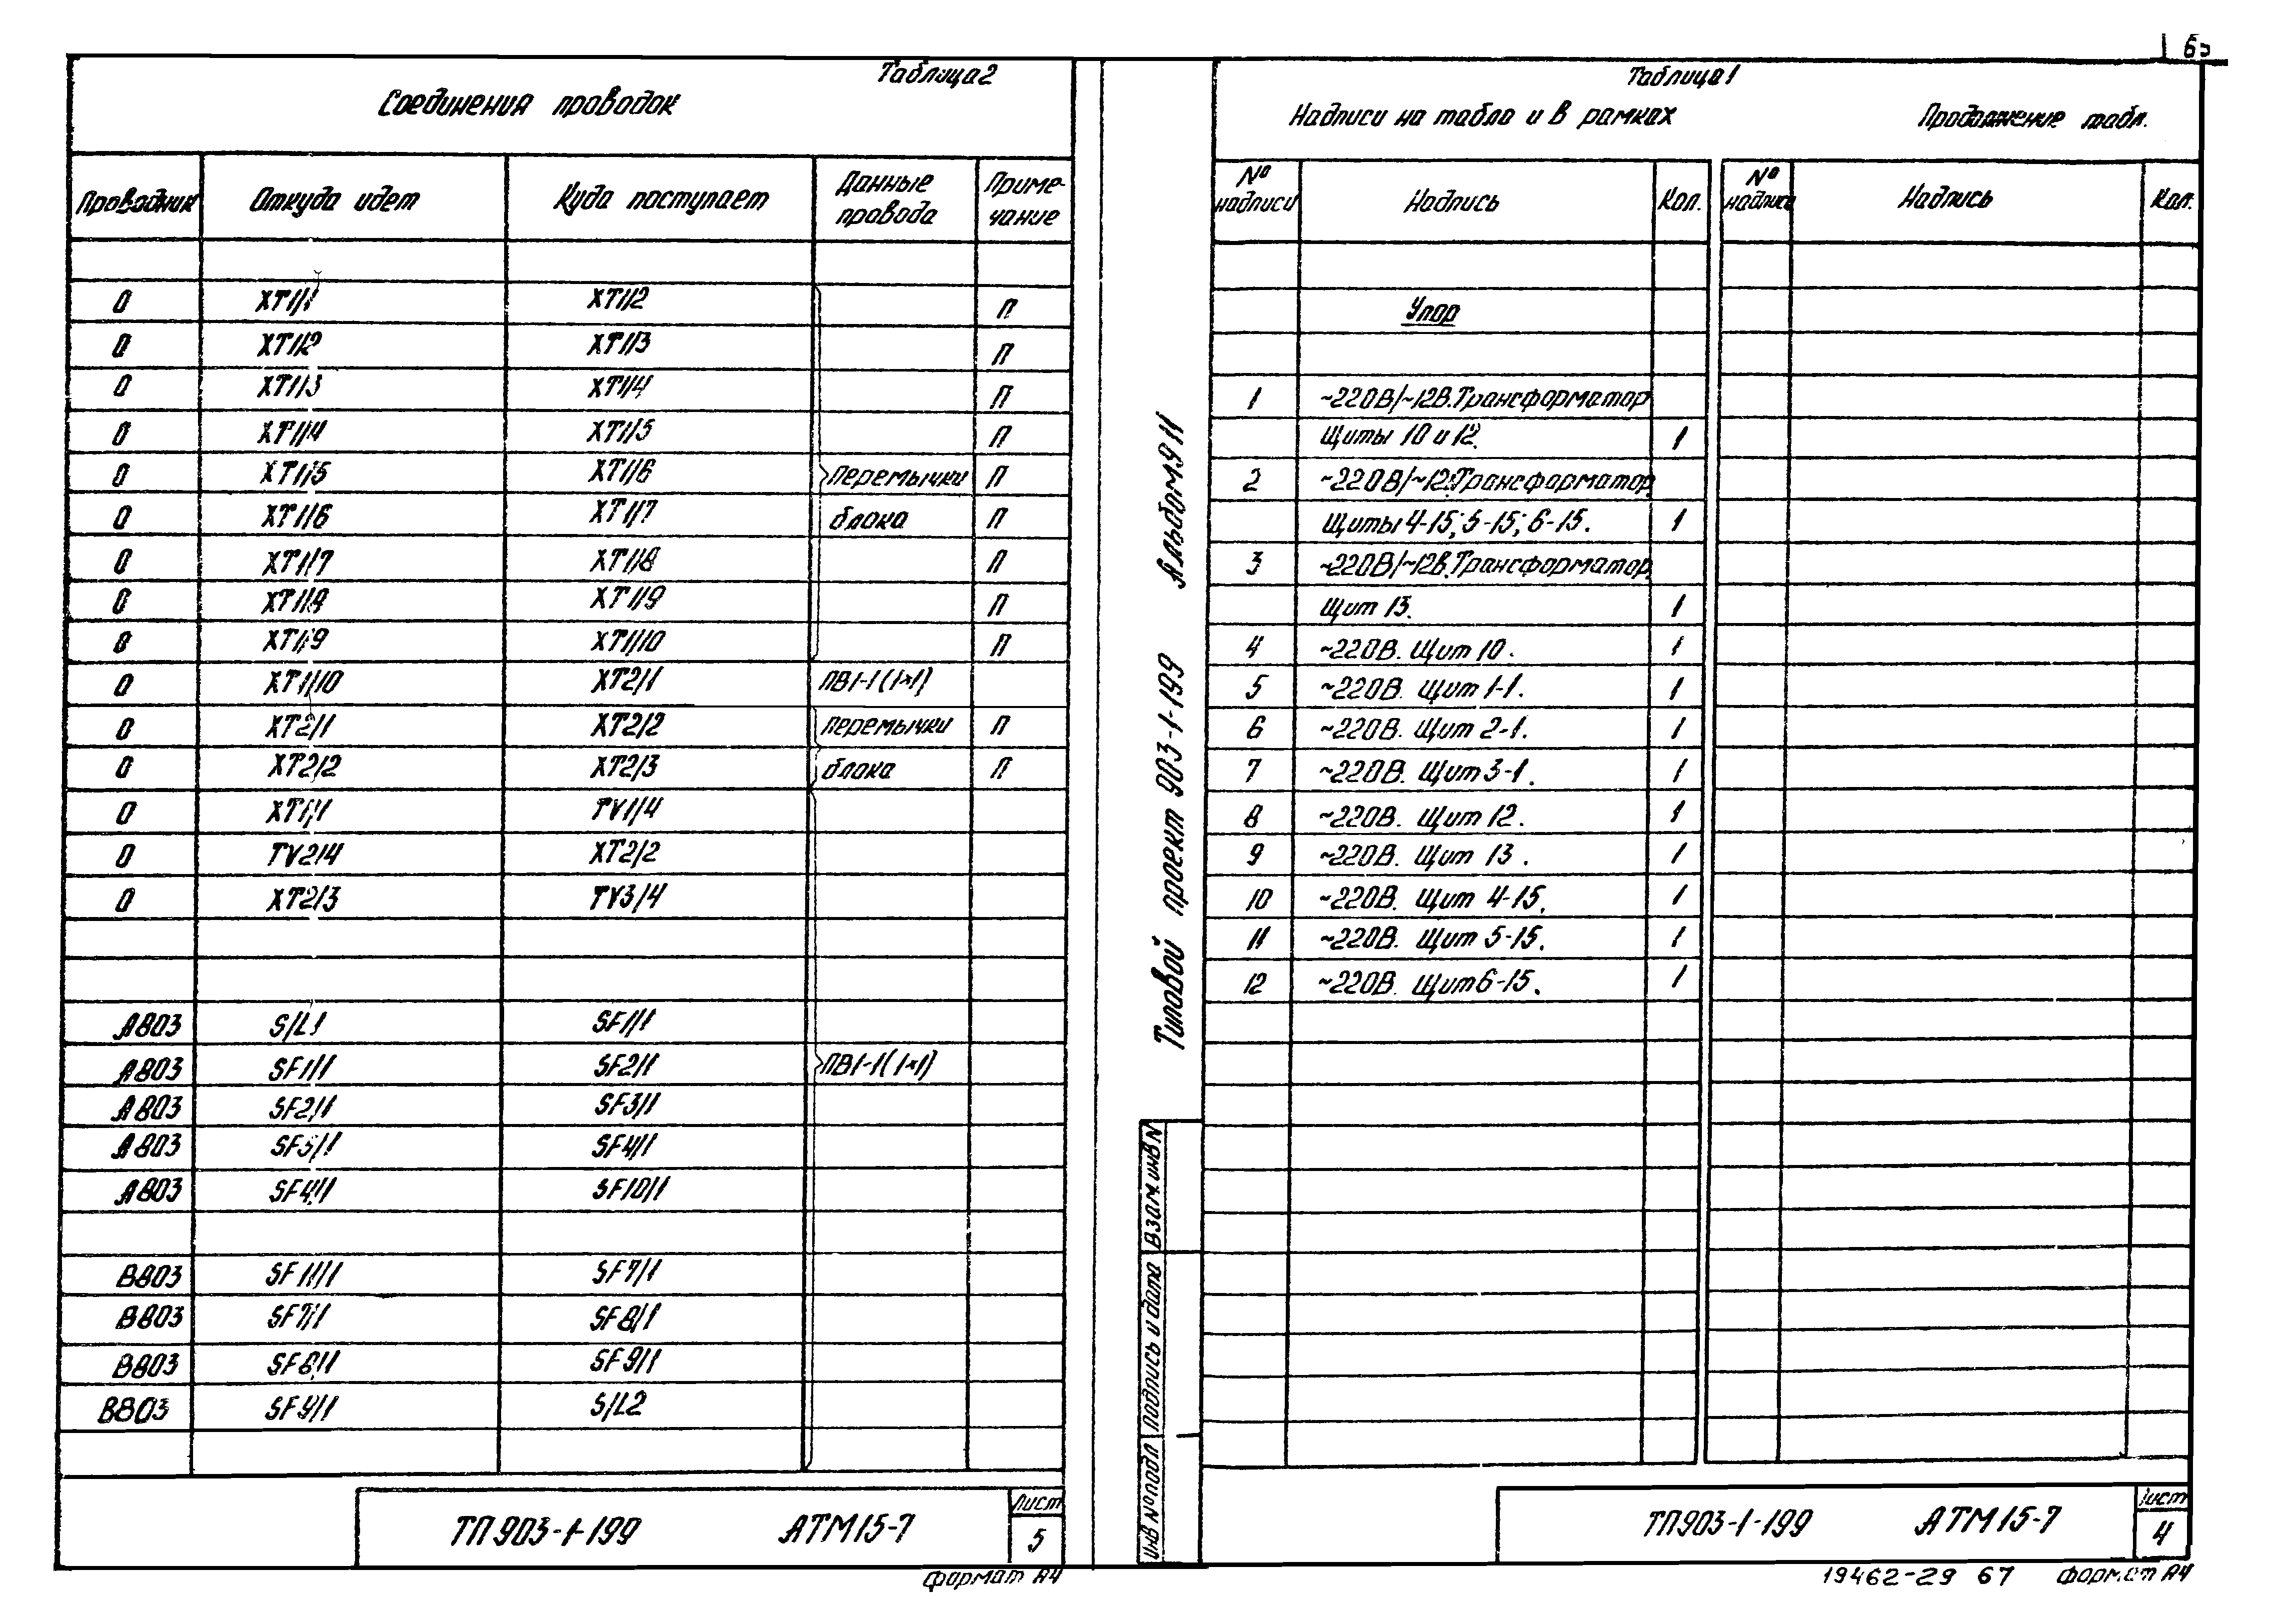 Таблица 2
Соединения проводок
Проводник Откуда идет Куда поступает Данные провода Примечание
0 XT1/1 XT1/2 П
0 XT1/2 XT1/3 П
0 XT1/3 XT1/4 П
0 XT1/4 XT1/5 П
0 XT1/5 XT1/6 перемычки П
0 XT1/6 XT1/7 блока П
0 XT1/7 XT1/8 П
0 XT1/8 XT1/9 П
0 XT1/9 XT1/10 П
0 XT1/10 XT2/1 ПВ1-1(1×1)
0 XT2/1 XT2/2 перемычки П
0 XT2/2 XT2/3 блока П
0 XT1/1 TV1/4
0 TV2/4 XT2/2
0 XT2/3 TV3/4
А803 S/L1 SF1/1
А803 SF1/1 SF2/1 ПВ1-1(1×1)
А803 SF2/1 SF3/1
А803 SF3/1 SF4/1
А803 SF4/1 SF10/1
В803 SF11/1 SF7/1
В803 SF7/1 SF8/1
В803 SF8/1 SF9/1
В803 SF9/1 S/L2
ТП 903-1-199 АТМ15-7 Лист 5
формат А4
Таблица 1
Надписи на табло и в рамках Продолжение табл.
№ надписи Надпись Кол. № надписи Надпись Кол.
Упор
1 ~220В/~12В. Трансформатор
Щиты 10 и 12. 1
2 ~220В/~12. Трансформатор.
Щиты 4-15; 5-15; 6-15. 1
3 ~220В/~12В. Трансформатор.
Щит 13. 1
4 ~220В. Щит 10. 1
5 ~220В. Щит 1-1. 1
6 ~220В. Щит 2-1. 1
7 ~220В. Щит 3-1. 1
8 ~220В. Щит 12. 1
9 ~220В. Щит 13. 1
10 ~220В. Щит 4-15. 1
11 ~220В. Щит 5-15. 1
12 ~220В. Щит 6-15. 1
Типовой проект 903-1-199 Альбом 9 11
Инв № подл Подпись и дата Взам. инв N
ТП903-1-199 АТМ15-7 Лист 4
19462-29 67 формат А4